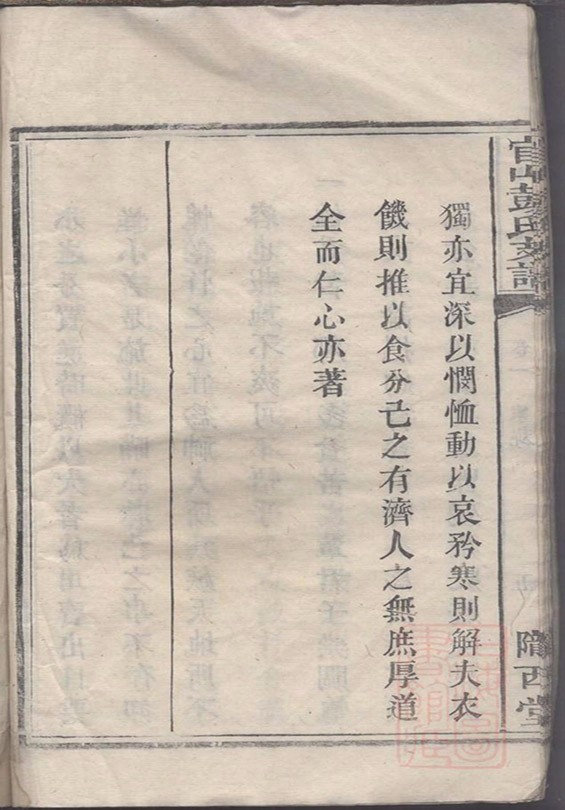 彭氏支譜
卷一
隴西堂
獨亦宜深以憫恤動以哀矜寒則解夫衣
饑則推以食分己之有濟人之無庶厚道
全而仁心亦著